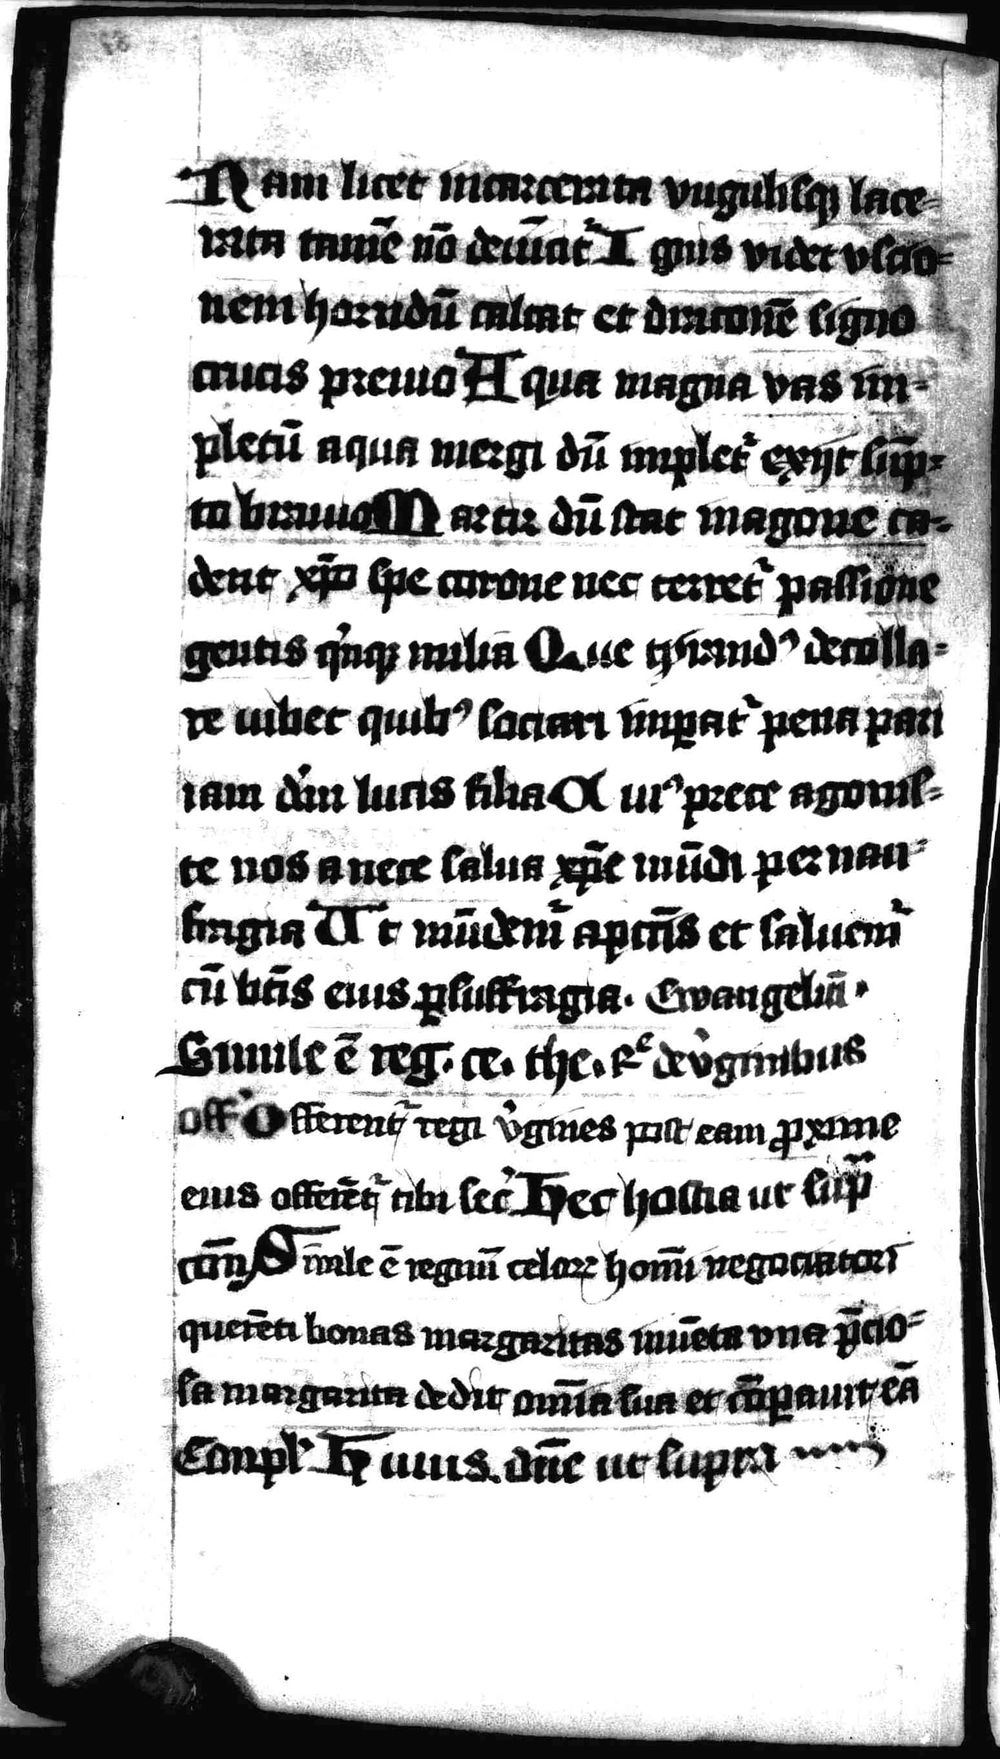 Nam licet incarcerata vngulisq lace-
rata tamē nō deuīcit᷑ Ignis videt vstio-
nem horridū calcat et draconē signo
crucis premio Aqua magna vas im-
pletū aqua mergi dū implet᷑ exijt sūp-
to brauio Martir dū stat in agone ca-
dent xp̄o spe corone nec terret᷑ passione
gentis qͥnqꝫ milia Que tyrandꝰ decolla-
re iubet quibꝰ sociari imꝑat᷑ pena pari
iam dͥm lucis filia Cuiꝰ prece agonis-
te nos a nece salua xp̄e mūdi per nau-
fragia Ut mūdem᷑ a pctīs et saluem᷑
cū btīs eius ꝑ suffragia. Ewangeliū.
Simile ē reg. ce. the. Rͤ de vͥginibus
offͦ Offerent᷑ regi vͥgines post eam ꝓxime
eius offerēt᷑ tibi sec᷑ Hec hostia ut supͣ
cōm̄ Simile ē regnū celoꝝ homī negociatori
querēti bonas margaritas inuēta vna p̄cio-
sa margarita dedit omīa sua et cōꝑauit eā
Conplͦ Huius. dn̄e ut supra